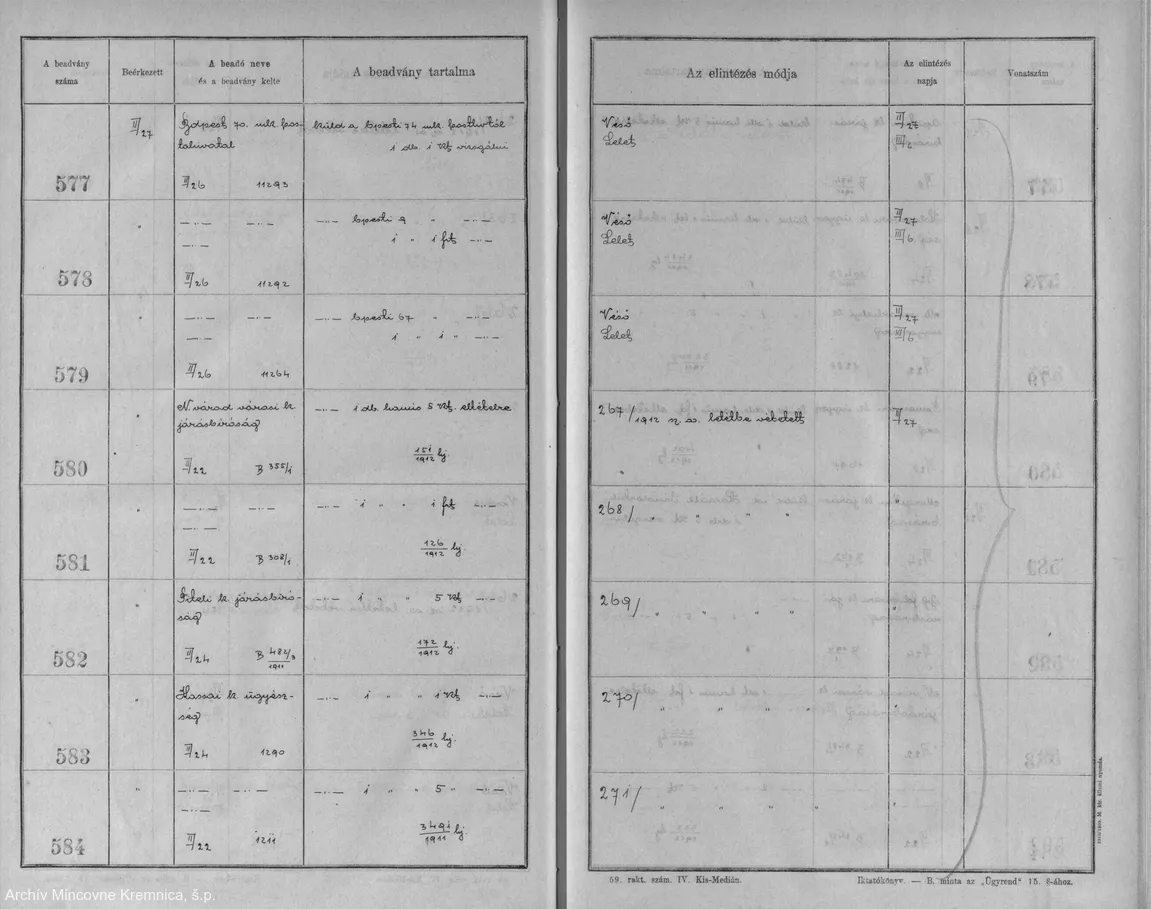 A beadvány
száma
Beérkezett
A beadó neve
és a beadvány kelte
A beadvány tartalma
Az elintézés módja
Az elintézés
napja
Vonatszám
577
II/27
Bdpest 70. mk. pos-
tahivatal
II/26 11293
küld a bpesti 74 mk. posthivtól
1 db. 1 Kf vizsgálni
Véső
Lelet
II/27
III/6
578
—..— —..—
—..—
II/26 11292
—..— bpesti 9 " —..—
1 " 1 frt —..—
Véső
Lelet
II/27
III/6
579
—..— —..—
—..—
II/26 11264
—..— bpesti 67 " —..—
1 " 1 " —..—
Véső
Lelet
II/27
III/6
580
N várad városi k
járásbíróság
II/22 B 355/1
—..— 1 db. hamis 5 Kf. eltételre
151/1912 bj.
267/1912 sz. a. letétbe vétetett
II/27
581
—..— —..—
—..—
II/22 B 308/1
—..— 1 " " 1 frt —..—
126/1912 bj.
268/ " " " "
"
582
k. járásbíró-
ság
II/24 B 482/3
1911
—..— 1 " " 5 Kf —..—
172/1912 bj.
269/ " " " "
583
Kassai k. ügyész-
ség
II/24 1290
—..— 1 " " 1 Kf —..—
346/1912 bj.
270/ " " " "
"
584
"
—..— —..—
—..—
II/22 1211
—..— 1 " " 5 " —..—
3491/1911 bj.
271/ " " " "
59. rakt. szám. IV. Kis-Medián.
Iktatókönyv. — B. minta az „Ügyrend" 15. §-ához.
Archív Mincovne Kremnica, š.p.